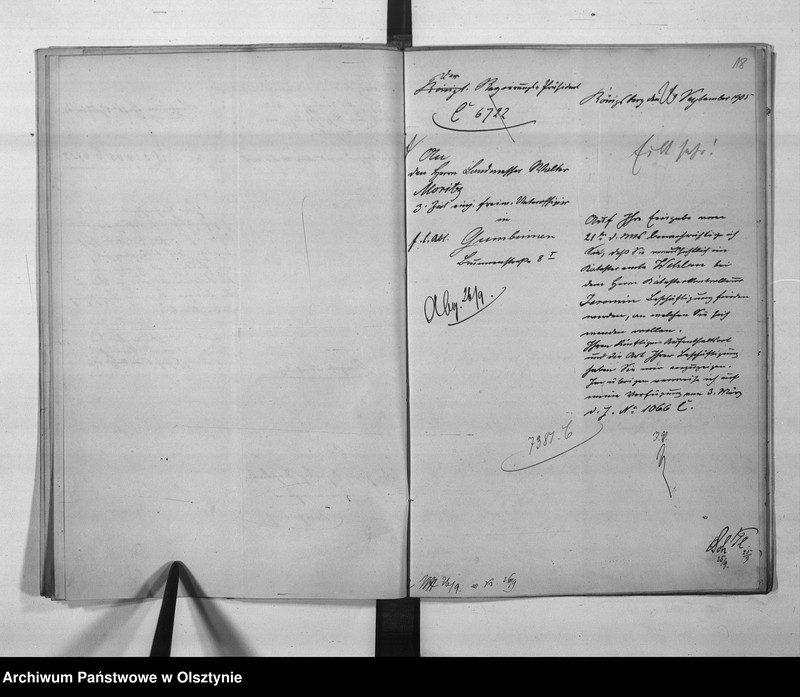 118
Der
Königl. Regierungs-Präsident
C 6722
Königsberg den September 1905
Eilt sehr!
An
den Herrn Landmesser Walter
Moritz
z. Zeit einj. freiw. Unteroffizier
in
Gumbinnen
Brunnenstraße 8 I
Abg. 26/9.
Auf Ihre Eingabe vom
21ten d. Mts. benachrichtige ich
Sie, daß Sie voraussichtlich im
Katasteramte Wehlau bei
dem Herrn Katasterkontrolleur
Jeromin Beschäftigung finden
werden, an welchen Sie sich
wenden wollen.
Ihren künftigen Aufenthaltsort
und die Art Ihrer Beschäftigung
haben Sie mir anzuzeigen.
Im übrigen verweise ich auf
meine Verfügung vom 3. März
d. J. No 1066 C.
7381. C
J.V.
25/9.
26/9.
Archiwum Państwowe w Olsztynie